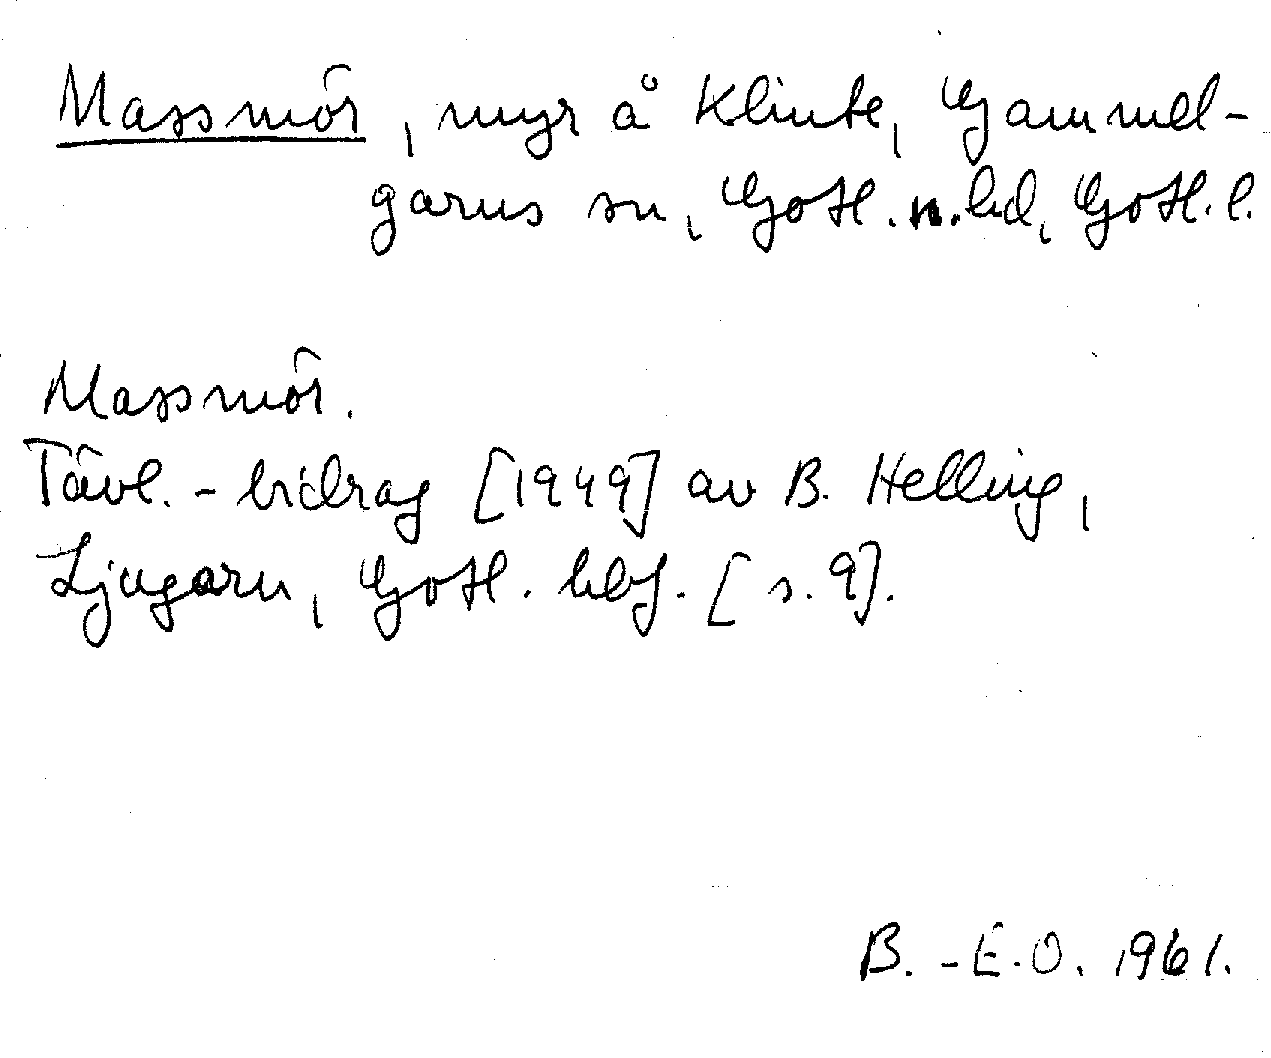 Massmör, myr å Klinte, Gammel-
garns sn, Gotl. n. hd, Gotl. l.
Massmör.
Tävl.-bidrag [1949] av B. Helling,
Ljugarn, Gotl. hbf. [s. 9].
B.-E.O. 1961.